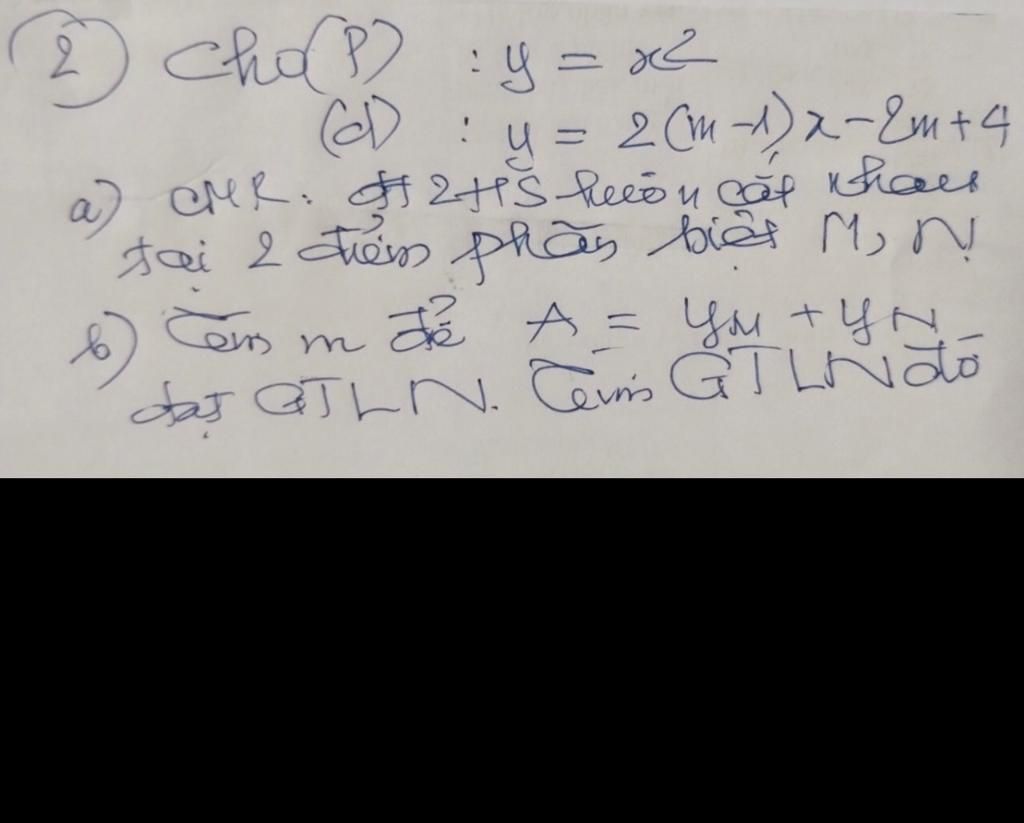 ② Cho (P) : y = x²
(d) : y = 2(m-1)x - 2m + 4
a) CMR: đt 2 HS luôn cắt nhau
tại 2 điểm phân biệt M, N
b) Tìm m để A = yM + yN
đạt GTLN. Tìm GTLN đó